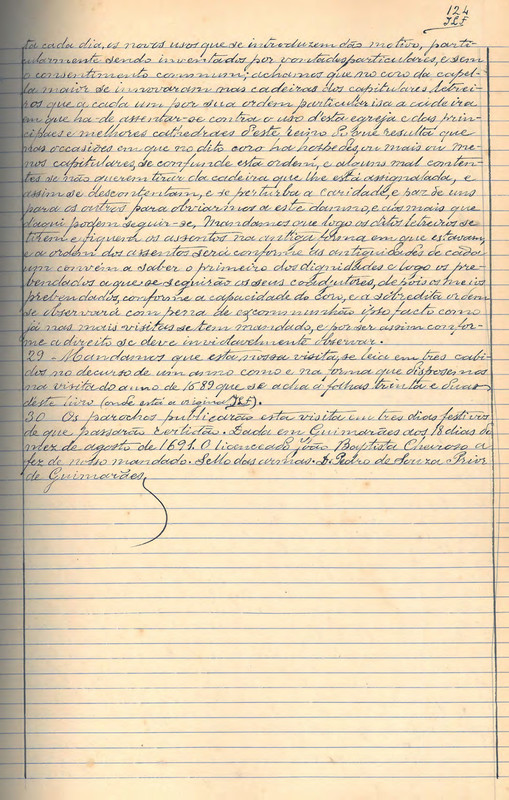 124
JLF
ta cada dia, os novos usos que se introduzem dão motivo, parti-
cularmente sendo inventados por vontades particulares, e sem
o consentimento commum; achamos que no coro da capel-
la maior se innovaram nas cadeiras dos capitulares letrei-
ros que a cada um por sua ordem particularisa a cadeira
em que ha de assentar-se contra o uso d'esta egreja e das prin-
cipaes e melhores cathedraes d'este reino do que resulta que
nas occasiões em que no dito coro ha hospedes, ou mais ou me-
nos capitulares, se confunde esta ordem, e alguns mal conten-
tes se não querem tirar da cadeira que lhe está assignalada, e
assim se descontentam, e se perturba a caridade, e paz de uns
para os outros para obviarmos a este damno, e aos mais que
daqui podem seguir-se, Mandamos que logo os ditos letreiros se
tirem e fiquem os assentos na antiga forma em que estavam,
e a ordem dos assentos será conforme ás antiguidades de cada
um convém a saber o primeiro dos dignidades e logo os pre-
bendados a que se seguirão os seus coadjutores, depois os meios
prebendados, conforme a capacidade do coro, e a sobredita ordem
se observará com pena de excommunhão ipso facto como
já nas mais visitas se tem mandado, e por ser assim confor-
me a direito se deve inviolavelmente observar.
29 - Mandamos que esta nossa visita, se leia em tres cabi-
dos no decurso de um anno como e na forma que dispozemos
na visita do anno de 1689 que se acha a folhas trinta e duas
deste livro (onde está a original JLF).
30 Os parochos publicarão esta visita em tres dias festivos
de que passarão certidão. Dada em Guimarães aos 18 dias do
mez de agosto de 1691. O licenceado João Baptista Cheiroso a
fez de nosso mandado. Sello das armas. D. Pedro de Souza Prior
de Guimarães